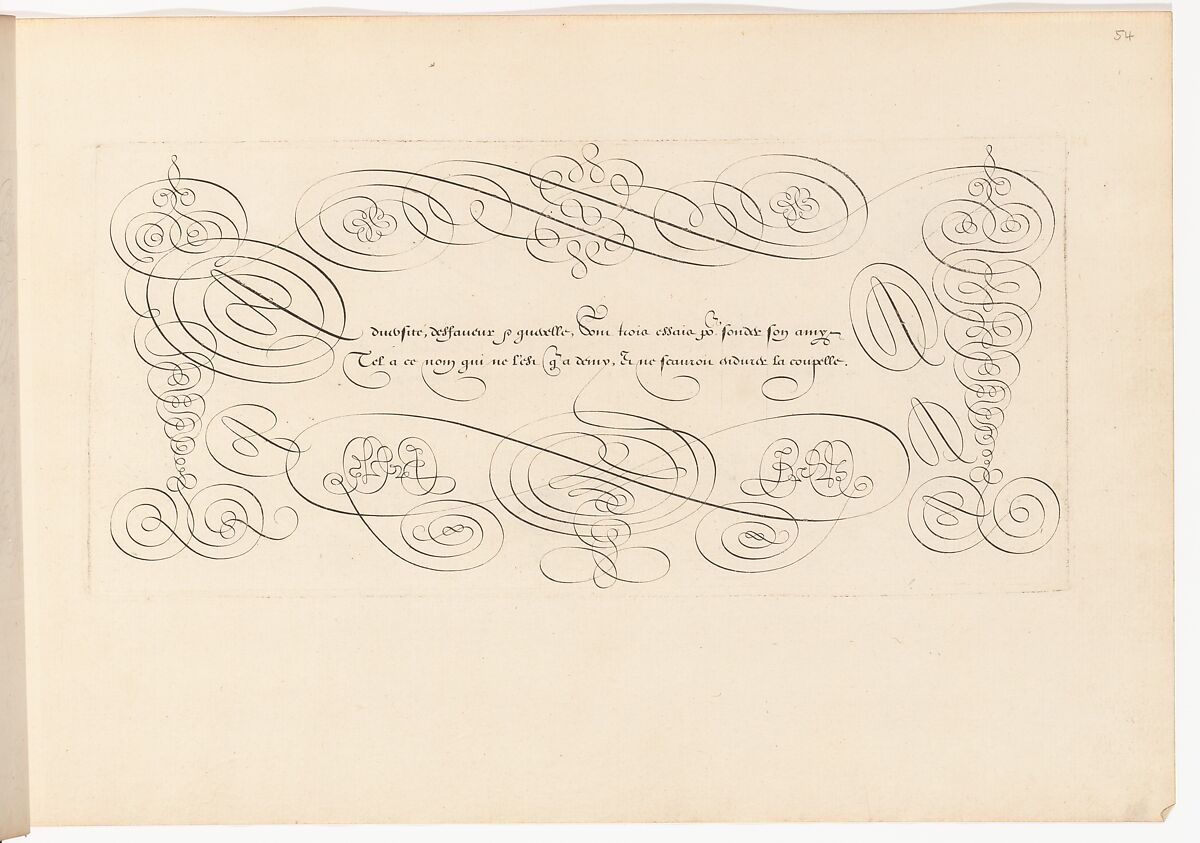 54
Aduersite, desfaueur & querelle, Sont trois essais po^r sonder son amy
Tel a ce nom qui ne l'est q'a demy, Et ne scauroit endurer la coupelle.